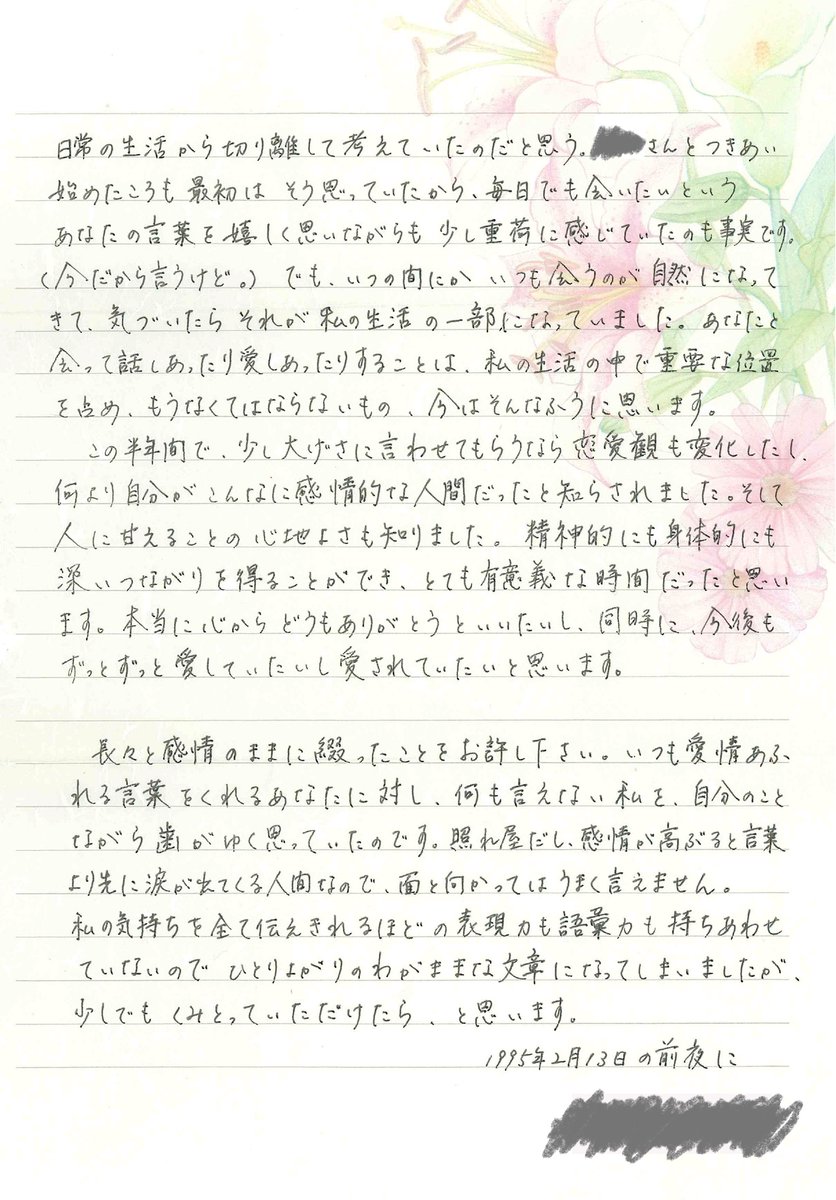 日常の生活から切り離して考えていたのだと思う。さんとつきあい
始めたころも最初はそう思っていたから、毎日でも会いたいという
あなたの言葉を嬉しく思いながらも少し重荷に感じていたのも事実です。
(今だから言うけど。)でも、いつの間にかいつも会うのが自然になって
きて、気づいたらそれが私の生活の一部になっていました。あなたと
会って話しあったり愛しあったりすることは、私の生活の中で重要な位置
を占め、もうなくてはならないもの、今はそんなふうに思います。
この半年間で、少し大げさに言わせてもらうなら恋愛観も変化したし、
何より自分がこんなに感情的な人間だったと知らされました。そして
人に甘えることの心地よさも知りました。精神的にも身体的にも
深いつながりを得ることができ、とても有意義な時間だったと思い
ます。本当に心からどうもありがとうといいたいし、同時に、今後も
ずっとずっと愛していたいし愛されていたいと思います。
長々と感情のままに綴ったことをお許し下さい。いつも愛情あふ
れる言葉をくれるあなたに対し、何も言えない私を、自分のこと
ながら歯がゆく思っていたのです。照れ屋だし、感情が高ぶると言葉
より先に涙が出てくる人間なので、面と向かってはうまく言えません。
私の気持ちを全て伝えきれるほどの表現力も語彙力も持ちあわせ
ていないのでひとりよがりのわがままな文章になってしまいましたが、
少しでもくみとっていただけたら、と思います。
1995年2月13日の前夜に